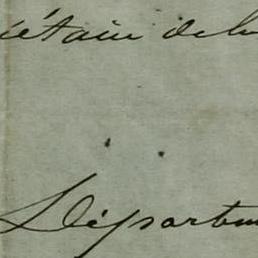 iétaire de la
Départem